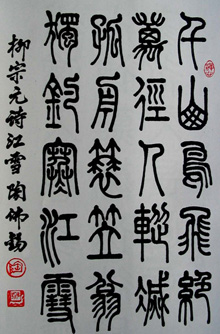 千山鳥飛絕
萬徑人蹤滅
孤舟蓑笠翁
獨釣寒江雪
柳宗元詩江雪陶佛錫